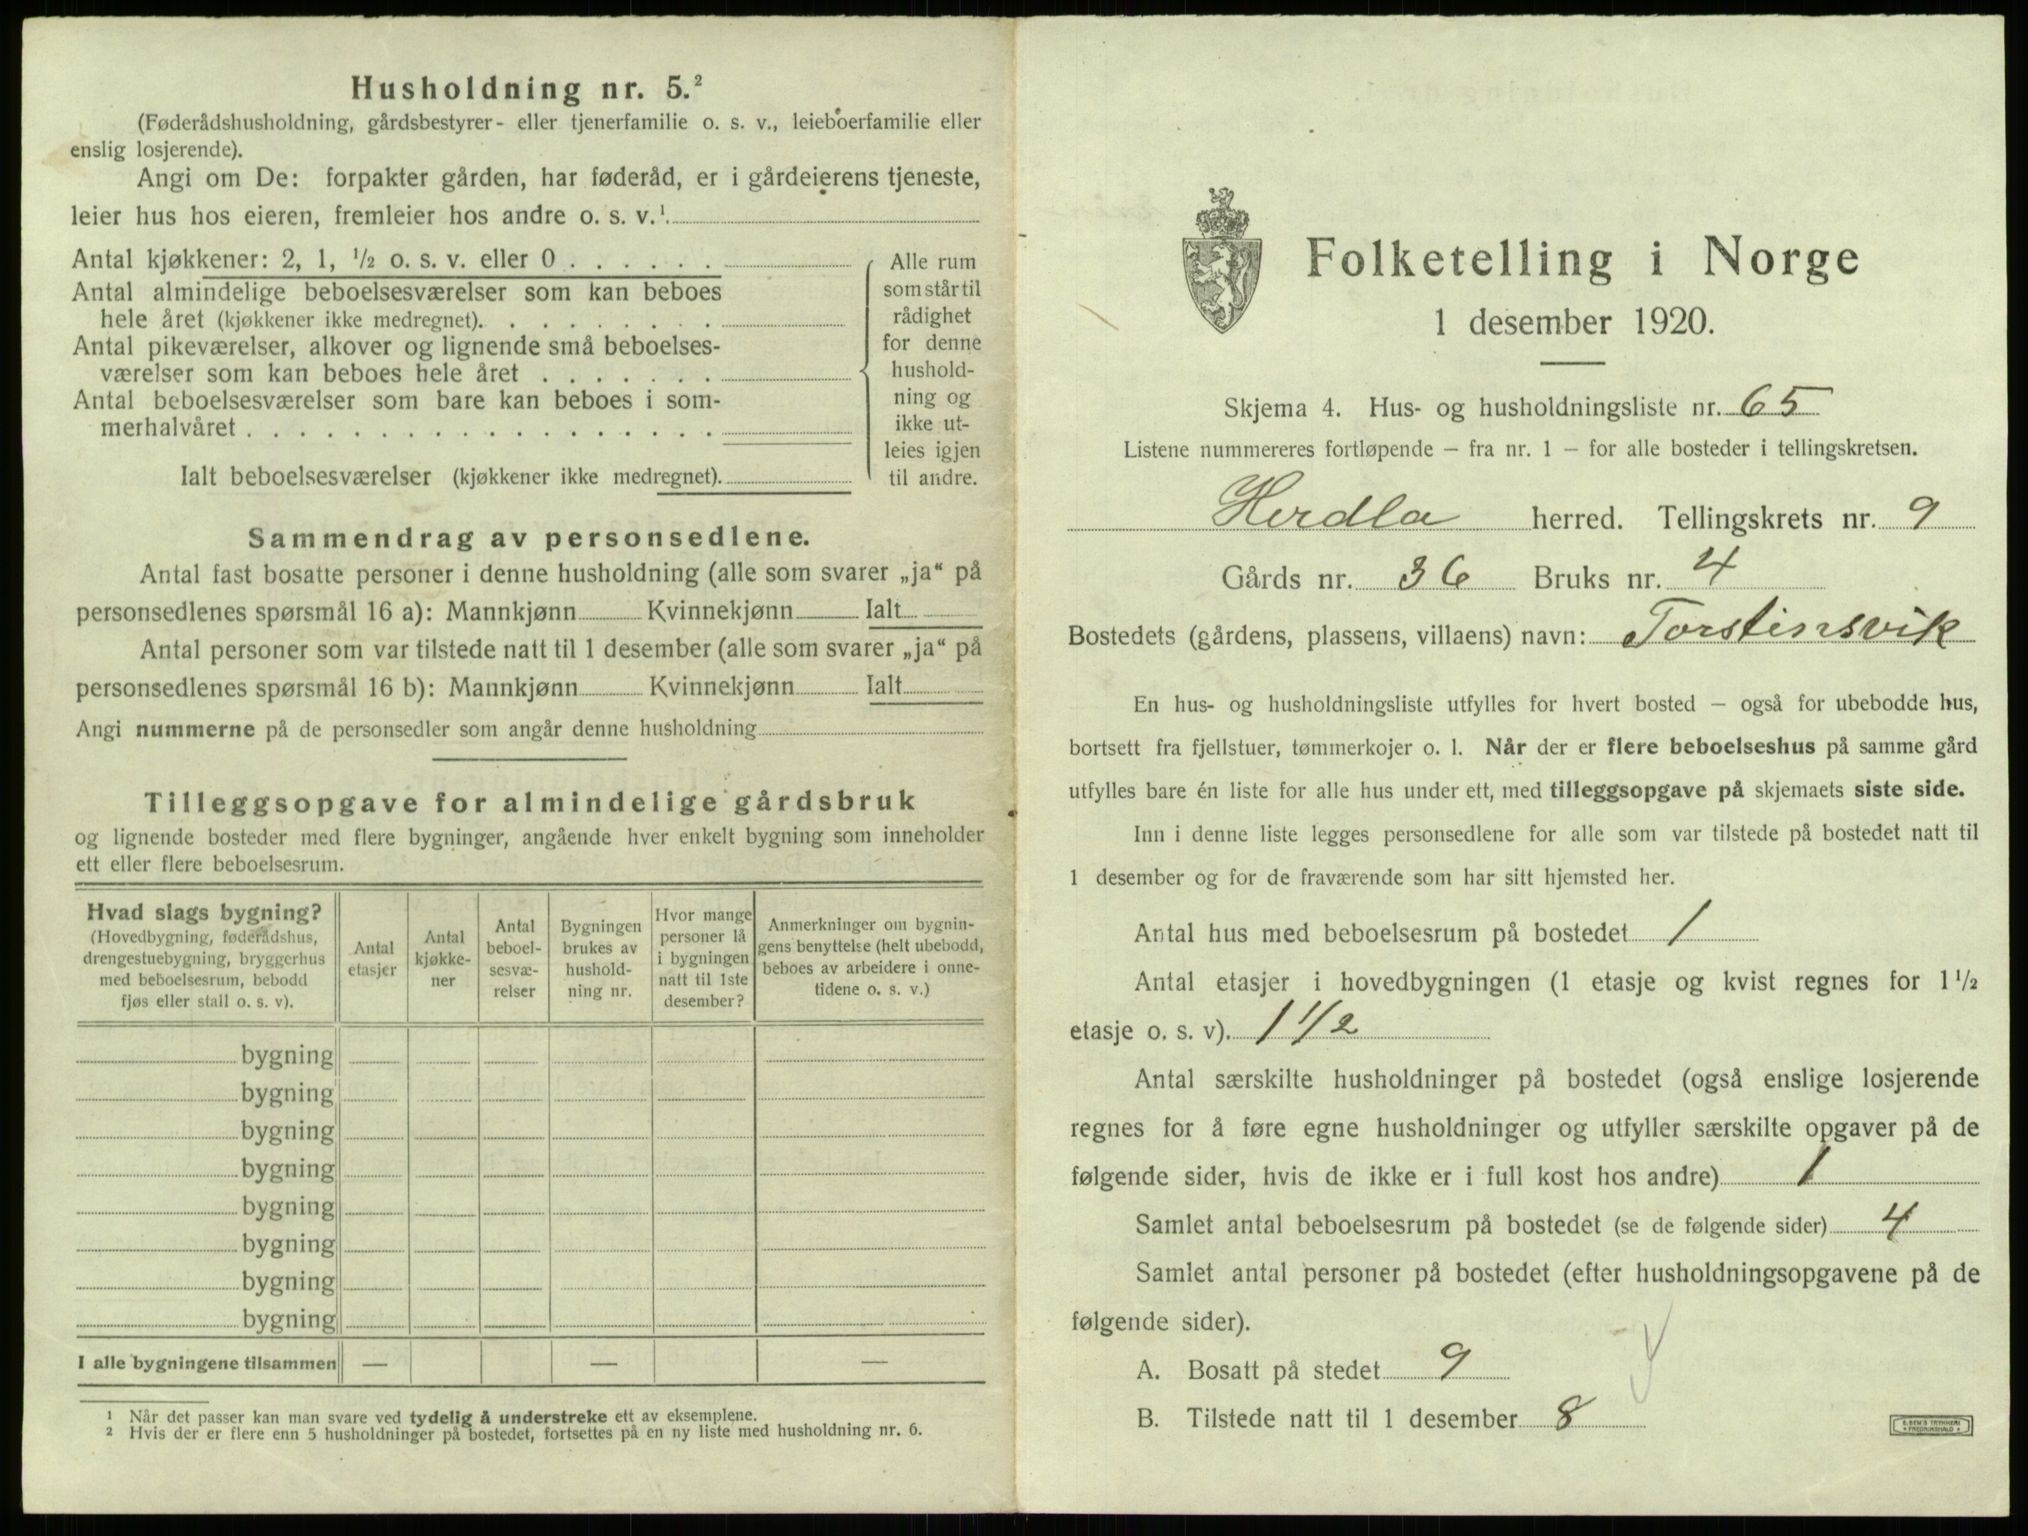 Husholdning nr. 5.²
(Føderådshusholdning, gårdsbestyrer- eller tjenerfamilie o. s. v., leieboerfamilie eller
enslig losjerende).
Angi om De: forpakter gården, har føderåd, er i gårdeierens tjeneste,
leier hus hos eieren, fremleier hos andre o. s. v.¹
Antal kjøkkener: 2, 1, ½ o. s. v. eller 0 . . . . . .
Antal almindelige beboelsesværelser som kan beboes
hele året (kjøkkener ikke medregnet). . . . . . . . .
Antal pikeværelser, alkover og lignende små beboelses-
værelser som kan beboes hele året . . . . . . .
Antal beboelsesværelser som bare kan beboes i som-
merhalvåret . . . . . . . . . . . . . . . . . .
Ialt beboelsesværelser (kjøkkener ikke medregnet).
Alle rum
som står til
rådighet
for denne
hushold-
ning og
ikke ut-
leies igjen
til andre.
Sammendrag av personsedlene.
Antal fast bosatte personer i denne husholdning (alle som svarer „ja“ på
personsedlenes spørsmål 16 a): Mannkjønn Kvinnekjønn Ialt
Antal personer som var tilstede natt til 1 desember (alle som svarer „ja“ på
personsedlenes spørsmål 16 b): Mannkjønn Kvinnekjønn Ialt
Angi nummerne på de personsedler som angår denne husholdning
Tilleggsopgave for almindelige gårdsbruk
og lignende bosteder med flere bygninger, angående hver enkelt bygning som inneholder
ett eller flere beboelsesrum.
Hvad slags bygning?
(Hovedbygning, føderådshus,
drengestuebygning, bryggerhus
med beboelsesrum, bebodd
fjøs eller stall o. s. v).
Antal
etasjer
Antal
kjøkke-
ner
Antal
beboel-
sesvæ-
relser
Bygningen
brukes av
hushold-
ning nr.
Hvor mange
personer lå
i bygningen
natt til 1ste
desember?
Anmerkninger om bygnin-
gens benyttelse (helt ubebodd,
beboes av arbeidere i onne-
tidene o. s. v.)
bygning
bygning
bygning
bygning
bygning
bygning
bygning
bygning
I alle bygningene tilsammen — — —
¹ Når det passer kan man svare ved tydelig å understreke ett av eksemplene.
² Hvis der er flere enn 5 husholdninger på bostedet, fortsettes på en ny liste med husholdning nr. 6.
Folketelling i Norge
1 desember 1920.
Skjema 4. Hus- og husholdningsliste nr. 65
Listene nummereres fortløpende – fra nr. 1 – for alle bosteder i tellingskretsen.
Herdla herred. Tellingskrets nr. 9
Gårds nr. 36 Bruks nr. 4
Bostedets (gårdens, plassens, villaens) navn: Torsteinsvik
En hus- og husholdningsliste utfylles for hvert bosted – også for ubebodde hus,
bortsett fra fjellstuer, tømmerkojer o. l. Når der er flere beboelseshus på samme gård
utfylles bare én liste for alle hus under ett, med tilleggsopgave på skjemaets siste side.
Inn i denne liste legges personsedlene for alle som var tilstede på bostedet natt til
1 desember og for de fraværende som har sitt hjemsted her.
Antal hus med beboelsesrum på bostedet 1
Antal etasjer i hovedbygningen (1 etasje og kvist regnes for 1½
etasje o. s. v). 1 1/2
Antal særskilte husholdninger på bostedet (også enslige losjerende
regnes for å føre egne husholdninger og utfyller særskilte opgaver på de
følgende sider, hvis de ikke er i full kost hos andre) 1
Samlet antal beboelsesrum på bostedet (se de følgende sider) 4
Samlet antal personer på bostedet (efter husholdningsopgavene på de
følgende sider).
A. Bosatt på stedet 9
B. Tilstede natt til 1 desember 8